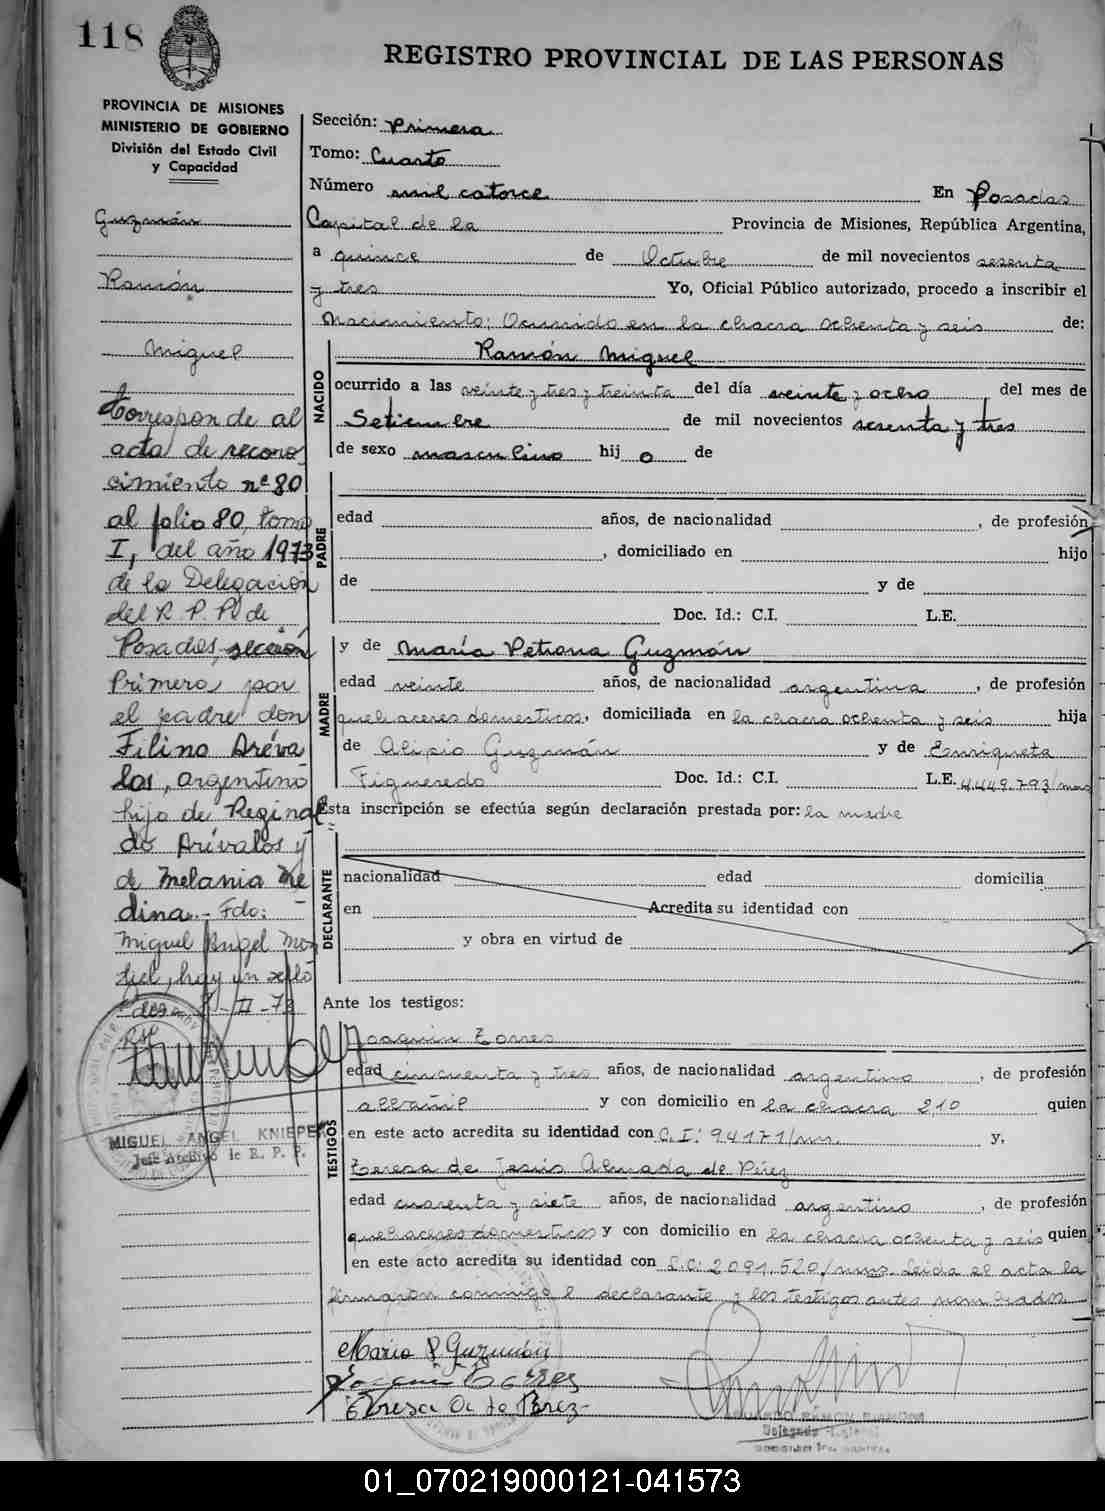 118
REGISTRO PROVINCIAL DE LAS PERSONAS
PROVINCIA DE MISIONES
MINISTERIO DE GOBIERNO
División del Estado Civil
y Capacidad
Guzmán
Ramón
Miguel
Corresponde al
acta de recono
cimiento nº 80
al folio 80, tomo
I, del año 1973
de la Delegación
del R. P. P. de
Posadas, sección
Primera por
el padre don
Filino Aréva
los, argentino
hijo de Reginal
do Arévalos y
de Melania Me
dina.- Fdo:
Miguel Angel
hay un sello
II-73
MIGUEL ANGEL KNIEPER
Jefe Archivo de R. P. P.
Sección: Primera
Tomo: Cuarto
Número mil catorce En Posadas
Capital de la Provincia de Misiones, República Argentina,
a quince de Octubre de mil novecientos sesenta
y tres Yo, Oficial Público autorizado, procedo a inscribir el
Nacimiento: Ocurrido en la chacra ochenta y seis de:
NACIDO
Ramón Miguel
ocurrido a las veinte y tres y treinta del día veinte y ocho del mes de
Setiembre de mil novecientos sesenta y tres
de sexo masculino hij o de
PADRE
edad años, de nacionalidad , de profesión
, domiciliado en hijo
de y de
Doc. Id.: C.I. L.E.
MADRE
y de María Petrona Guzmán
edad veinte años, de nacionalidad argentina, de profesión
quehaceres domesticos, domiciliada en la chacra ochenta y seis hija
de Alipio Guzmán y de Enriqueta
Figueredo Doc. Id.: C.I. L.E. 4.449.793/
Esta inscripción se efectúa según declaración prestada por: la madre
DECLARANTE
nacionalidad edad domicilia
en Acredita su identidad con
y obra en virtud de
Ante los testigos:
TESTIGOS
Joaquin Torres
edad cincuenta y tres años, de nacionalidad argentino, de profesión
albañil y con domicilio en la chacra 210 quien
en este acto acredita su identidad con C.I: 94171/mnes. y,
Teresa de Jesús Almada de Pérez
edad cuarenta y siete años, de nacionalidad argentina, de profesión
quehaceres domesticos y con domicilio en la chacra ochenta y seis quien
en este acto acredita su identidad con 2091.520/mnes. Leida el acta la
firmaron conmigo l declarante y los testigos antes nombrados
Maria P Guzmán
Joaquin Torres
Teresa A de Perez
01_070219000121-041573